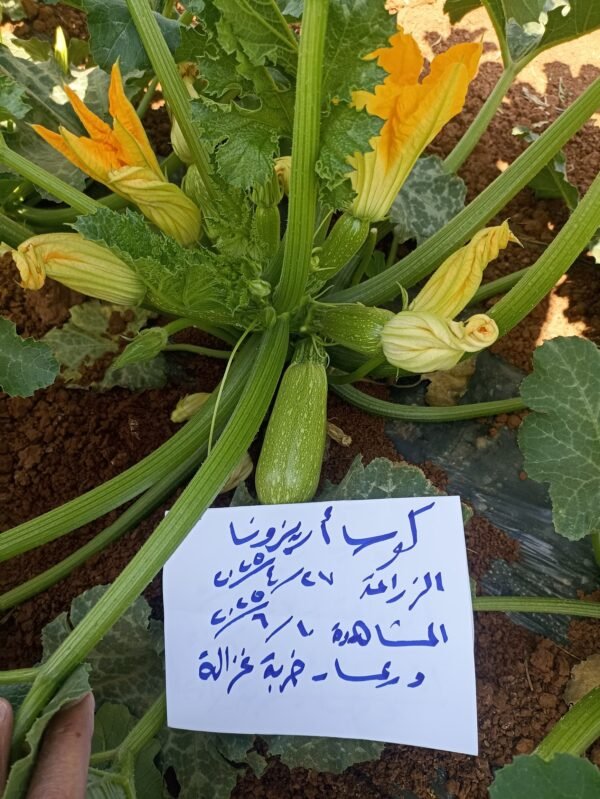 كوسا أريزونا
الزراعة ٢٧/٤/٢٠٢٥
المشاهدة ١٠/٦/٢٠٢٥
خربة غزالة